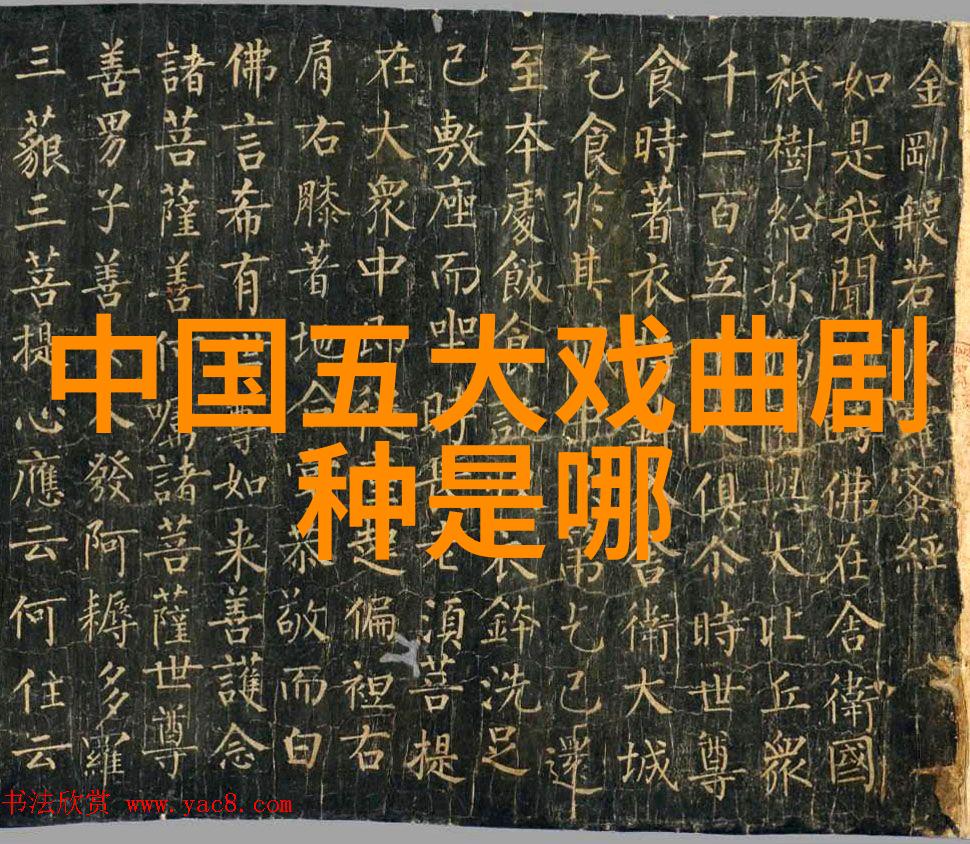 中国五大戏曲剧
种是哪
金剛般若蜜經
如是我聞佛在舍衛國
祇樹給孤與大比丘衆
千二百五俱尒時世尊
食時著衣舍衛大城
乞食於其苐乞已還
至本處飯食衣鉢洗足
已敷座而坐時須菩提
在大衆中起偏袒右
肩右膝著地恭敬而白
佛言希有尊如来善護念
諸菩薩善付嘱諸菩薩世尊
善男子善人發阿耨多羅
三藐三菩提心應云何住云
书法欣赏 www.yac8.com